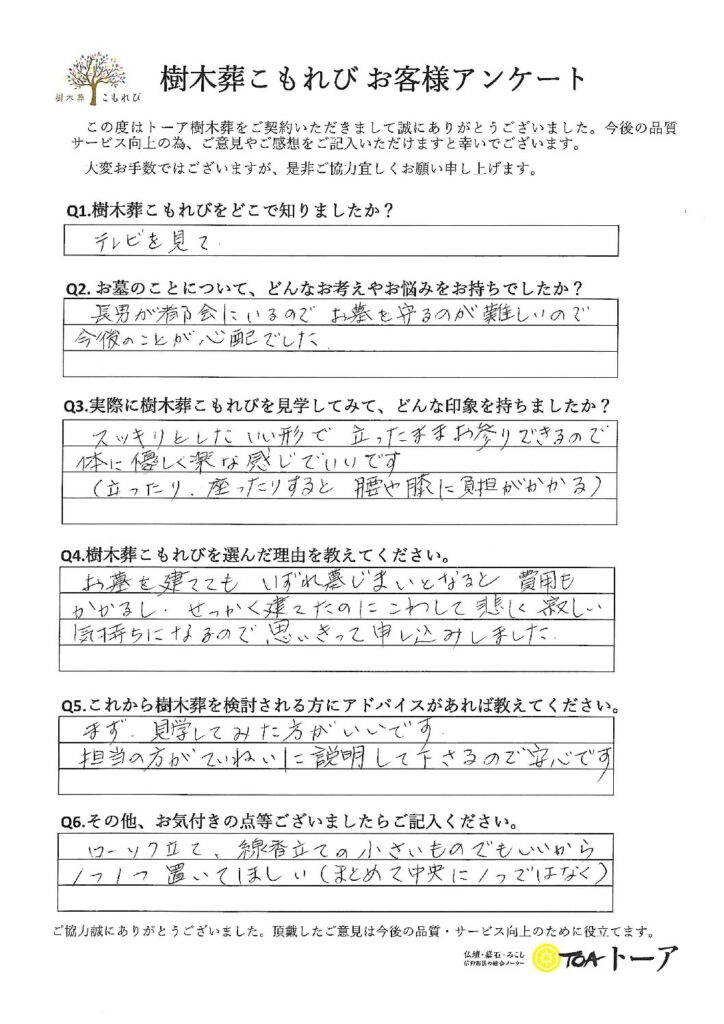 樹木葬 こもれび
樹木葬こもれび お客様アンケート
この度はトーア樹木葬をご契約いただきまして誠にありがとうございました。今後の品質
サービス向上の為、ご意見やご感想をご記入いただけますと幸いでございます。
大変お手数ではございますが、是非ご協力宜しくお願い申し上げます。
Q1.樹木葬こもれびをどこで知りましたか？
テレビを見て.
Q2. お墓のことについて、どんなお考えやお悩みをお持ちでしたか？
長男が都会にいるので お墓を守るのが難しいので
今後のことが心配でした.
Q3.実際に樹木葬こもれびを見学してみて、どんな印象を持ちましたか？
スッキリとしたいい形で 立ったままお参りできるので
体に優しく楽な感じでいいです
（立ったり、座ったりすると 腰や膝に負担がかかる）
Q4.樹木葬こもれびを選んだ理由を教えてください。
お墓を建てても いずれ墓じまいとなると 費用も
かかるし、せっかく建てたのにこわして悲しく寂しい
気持ちになるので思いきって申し込みしました.
Q5.これから樹木葬を検討される方にアドバイスがあれば教えてください。
まず、見学してみた方がいいです.
担当の方がていねいに説明して下さるので安心です
Q6.その他、お気付きの点等ございましたらご記入ください。
ローソク立て、線香立ての小さいものでもいいから
1つ1つ置いてほしい（まとめて中央に1つではなく）
ご協力誠にありがとうございました。頂戴したご意見は今後の品質・サービス向上のために役立てます。
仏壇・墓石・みこし
TOAトーア